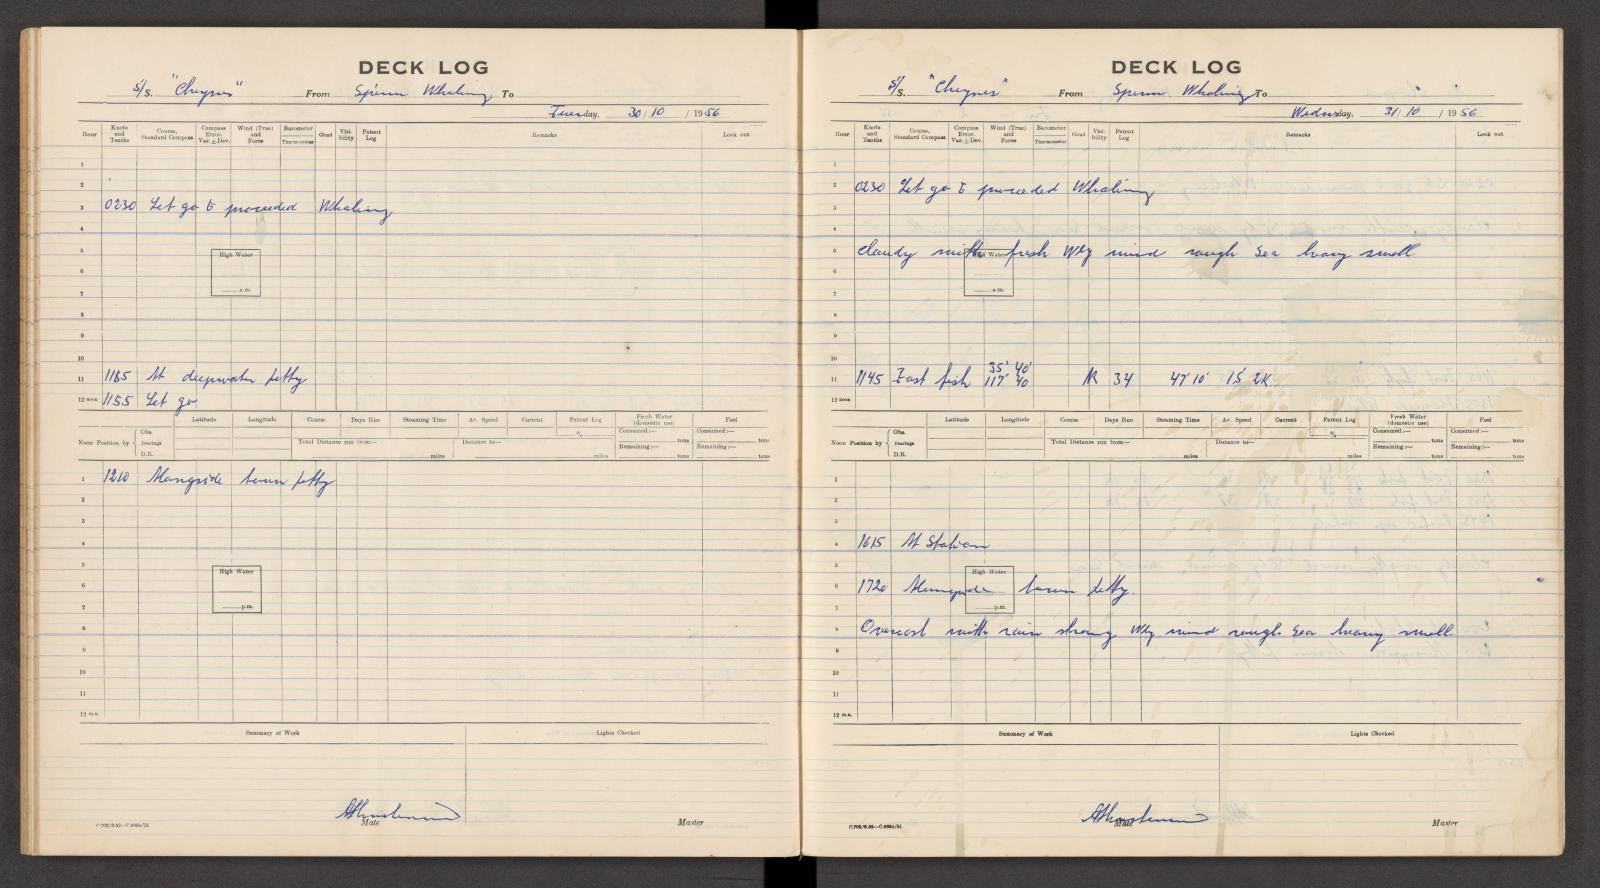 DECK LOG
S/S. "Cheynes" From Sperm Whaling To
Tuesday, 30/10/1956
Hour Knots and Tenths Course, Standard Compass Compass Error. Var. ± Dev. Wind (True) and Force Barometer Thermometer Cloud Visibility Patent Log Remarks Look out
1
2
3 0230 Let go & proceeded Whaling
4
5 High Water
6
7 a.m.
8
9
10
11 1185 At deepwater jetty
12 noon 1155 Let go
Latitude Longitude Course Days Run Steaming Time Av. Speed Current Patent Log Fresh Water (domestic use) Fuel
Noon Position by Obs. Bearings D.R. % Consumed :— tons Consumed :— tons
Total Distance run from— miles Distance to— miles Remaining :— tons Remaining :— tons
1 1210 Alongside town jetty
2
3
4
5 High Water
6
7 p.m.
8
9
10
11
12 m.n.
Summary of Work Lights Checked
Mate Master
DECK LOG
S/S. "Cheynes" From Sperm Whaling To
Wednesday, 31/10/1956
Hour Knots and Tenths Course, Standard Compass Compass Error. Var. ± Dev. Wind (True) and Force Barometer Thermometer Cloud Visibility Patent Log Remarks Look out
1
2 0230 Let go & proceeded Whaling
3
4
5 Cloudy with fresh Wly wind rough Sea heavy swell
High Water
6
7 a.m.
8
9
10
35' 40'
11 1145 East fish 117' 40 34 47' 10' 15' 2K
12 noon
Latitude Longitude Course Days Run Steaming Time Av. Speed Current Patent Log Fresh Water (domestic use) Fuel
Noon Position by Obs. Bearings D.R. % Consumed :— tons Consumed :— tons
Total Distance run from— miles Distance to— miles Remaining :— tons Remaining :— tons
1
2
3
4 1615 At Station
5 High Water
6 1720 Alongside town jetty.
7 p.m.
8 Overcast with rain strong Wly wind rough Sea heavy swell
9
10
11
12 m.n.
Summary of Work Lights Checked
Mate Master